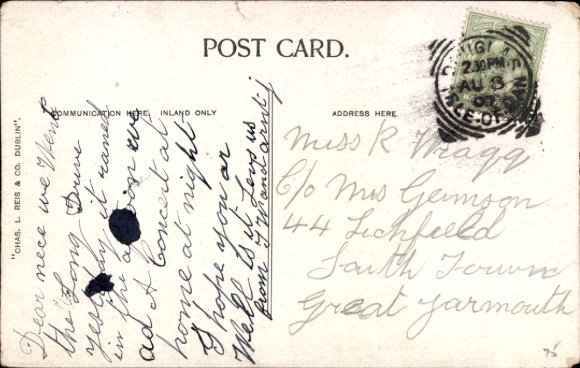 POST CARD.
COMMUNICATION HERE INLAND ONLY
ADDRESS HERE
"CHAS. L. REIS & CO. DUBLIN".
DOUGLAS
2.30PM
AU 3
ISLE.OF.MAN
Dear nece we Went
the Long Drive
yesterday it raned
in the
ad A Concert at
home at night
I hope you ar
Well
from
Miss R Wragg
C/o Mrs Gemson
44 Lichfield
South Town
Great Yarmouth